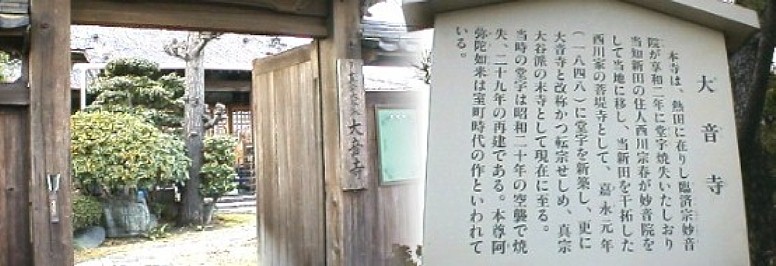 大音寺
大音寺
本寺は、熱田に在りし臨済宗妙音
院が享和二年に堂宇焼失いたしおり
当知新田の住人西川宗春が妙音院を
して当地に移し、当新田を干拓した
西川家の菩堤寺として、嘉永元年
(一八四八)に堂宇を新築し、更に
大音寺と改称かつ転宗せしめ、真宗
大谷派の末寺として現在に至る。
当時の堂宇は昭和二十年の空襲で焼
失、二十九年の再建である。本尊阿
弥陀如来は室町時代の作といわれて
いる。